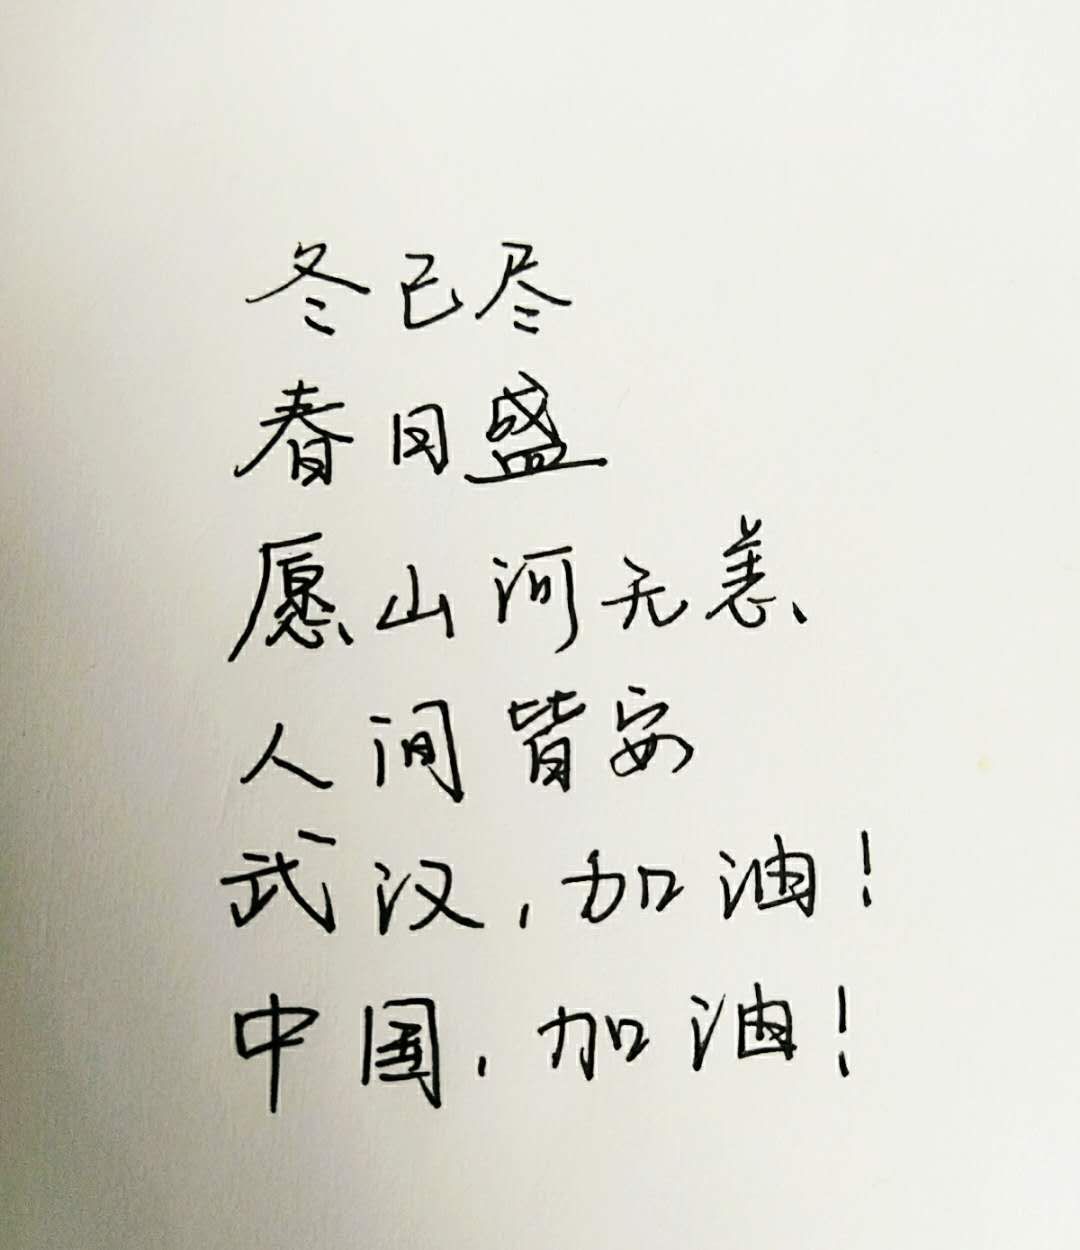 冬已尽
春日盛
愿山河无恙
人间皆安
武汉，加油！
中国，加油！